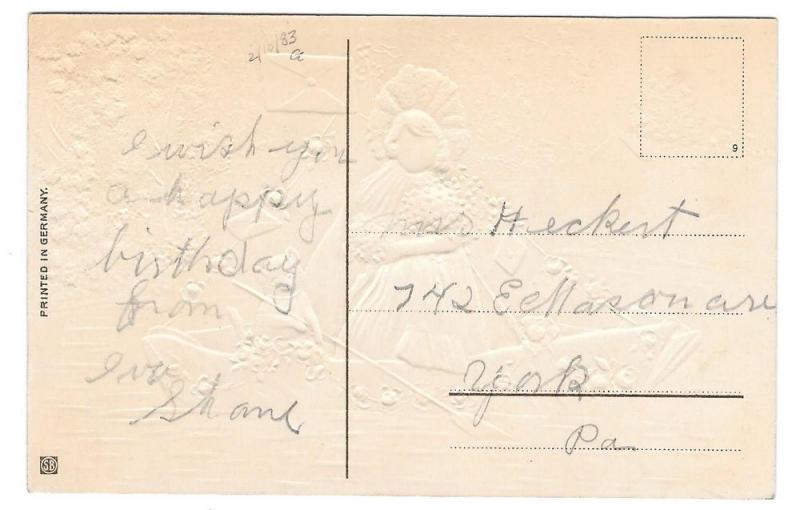 2/10/83
a
I wish you
a happy
birthday
from
Iva
Shane
PRINTED IN GERMANY.
SB
9
Mrs Heckert
742 E Mason ave
York
Pa